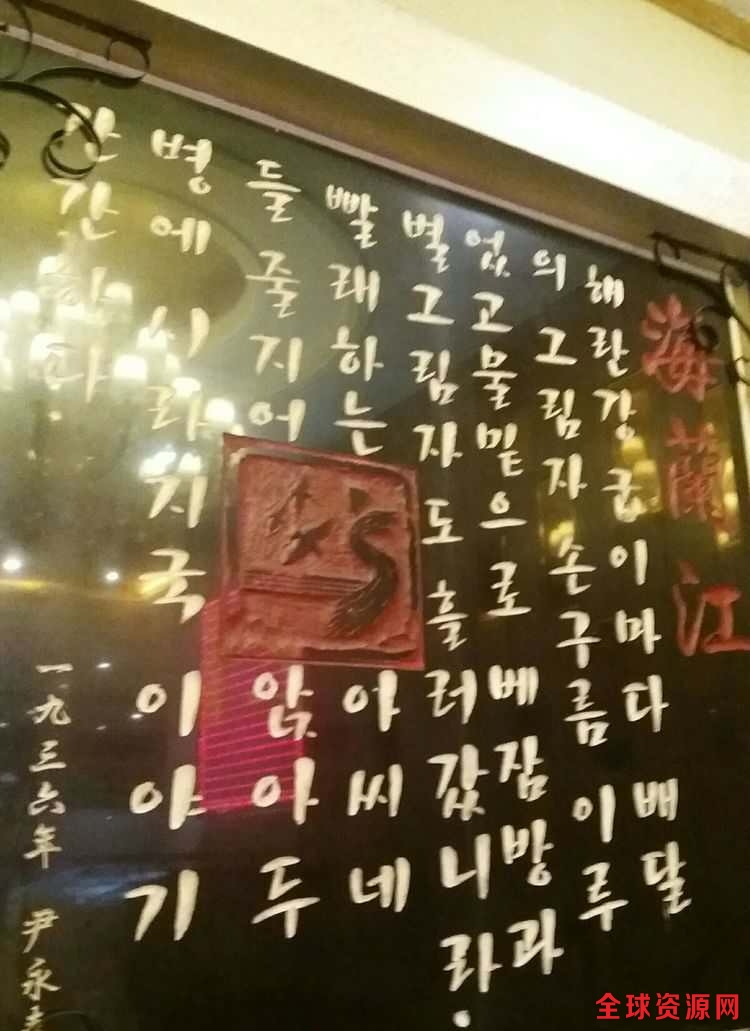 海蘭江
해란강굽이마다 배달
의그림자 손구름 이루
었고물밑으로 베잠방과
별그림자도흘러갔니라.
빨래하는 아씨네
들줄지어 앉아두
병에시라지국 이야기
간간하다.
一九三六年 尹永
全球资源网